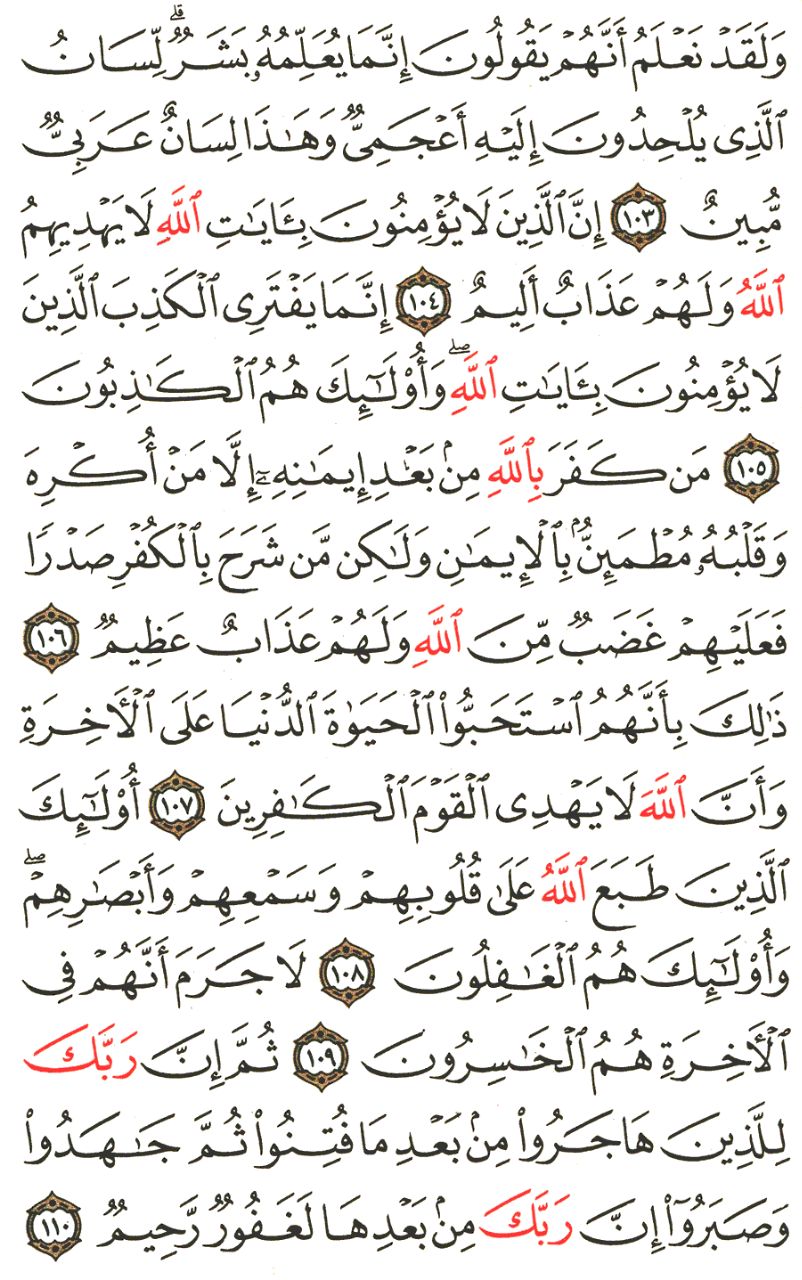 وَلَقَدۡ نَعۡلَمُ أَنَّهُمۡ يَقُولُونَ إِنَّمَا يُعَلِّمُهُۥ بَشَرٞۗ لِّسَانُ
ٱلَّذِي يُلۡحِدُونَ إِلَيۡهِ أَعۡجَمِيّٞ وَهَٰذَا لِسَانٌ عَرَبِيّٞ
مُّبِينٌ ١٠٣ إِنَّ ٱلَّذِينَ لَا يُؤۡمِنُونَ بِـَٔايَٰتِ ٱللَّهِ لَا يَهۡدِيهِمُ
ٱللَّهُ وَلَهُمۡ عَذَابٌ أَلِيمٌ ١٠٤ إِنَّمَا يَفۡتَرِي ٱلۡكَذِبَ ٱلَّذِينَ
لَا يُؤۡمِنُونَ بِـَٔايَٰتِ ٱللَّهِۖ وَأُوْلَٰٓئِكَ هُمُ ٱلۡكَٰذِبُونَ
١٠٥ مَن كَفَرَ بِٱللَّهِ مِنۢ بَعۡدِ إِيمَٰنِهِۦٓ إِلَّا مَنۡ أُكۡرِهَ
وَقَلۡبُهُۥ مُطۡمَئِنُّۢ بِٱلۡإِيمَٰنِ وَلَٰكِن مَّن شَرَحَ بِٱلۡكُفۡرِ صَدۡرٗا
فَعَلَيۡهِمۡ غَضَبٞ مِّنَ ٱللَّهِ وَلَهُمۡ عَذَابٌ عَظِيمٞ ١٠٦
ذَٰلِكَ بِأَنَّهُمُ ٱسۡتَحَبُّواْ ٱلۡحَيَوٰةَ ٱلدُّنۡيَا عَلَى ٱلۡأٓخِرَةِ
وَأَنَّ ٱللَّهَ لَا يَهۡدِي ٱلۡقَوۡمَ ٱلۡكَٰفِرِينَ ١٠٧ أُوْلَٰٓئِكَ
ٱلَّذِينَ طَبَعَ ٱللَّهُ عَلَىٰ قُلُوبِهِمۡ وَسَمۡعِهِمۡ وَأَبۡصَٰرِهِمۡۖ
وَأُوْلَٰٓئِكَ هُمُ ٱلۡغَٰفِلُونَ ١٠٨ لَا جَرَمَ أَنَّهُمۡ فِي
ٱلۡأٓخِرَةِ هُمُ ٱلۡخَٰسِرُونَ ١٠٩ ثُمَّ إِنَّ رَبَّكَ
لِلَّذِينَ هَاجَرُواْ مِنۢ بَعۡدِ مَا فُتِنُواْ ثُمَّ جَٰهَدُواْ
وَصَبَرُوٓاْ إِنَّ رَبَّكَ مِنۢ بَعۡدِهَا لَغَفُورٞ رَّحِيمٞ ١١٠